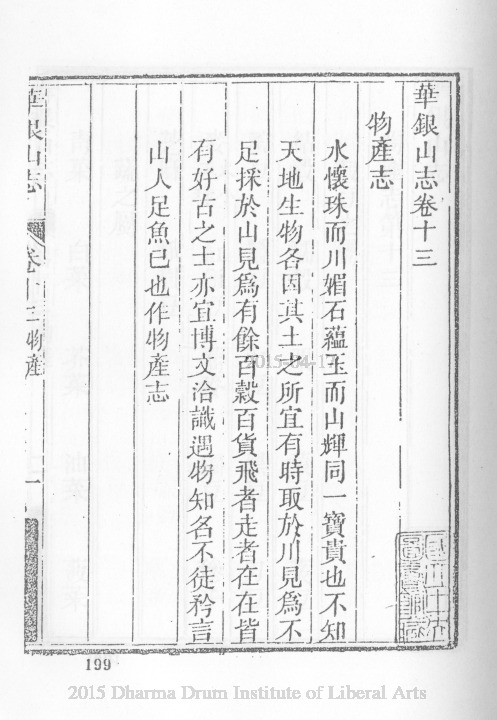 華銀山志卷十三
物產志
水懷珠而川媚石蘊玉而山輝同一寶貴也不知
天地生物各因其土之所宜有時取於川見爲不
足採於山見爲有餘百穀百貨飛者走者在在皆
有好古之士亦宜博文洽識遇物知名不徒矜言
山人足魚已也作物產志
華銀山志
卷十三物產
一
2015-04-17
199
2015 Dharma Drum Institute of Liberal Arts